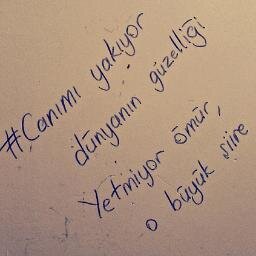 #Canımı yakıyor
dünyanın güzelliği
Yetmiyor ömür,
o büyük şiire